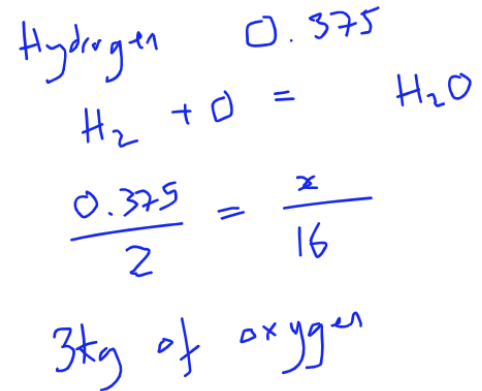 Hydrogen 0.375
H₂ + O = H₂O
0.375/2 = x/16
3kg of oxygen